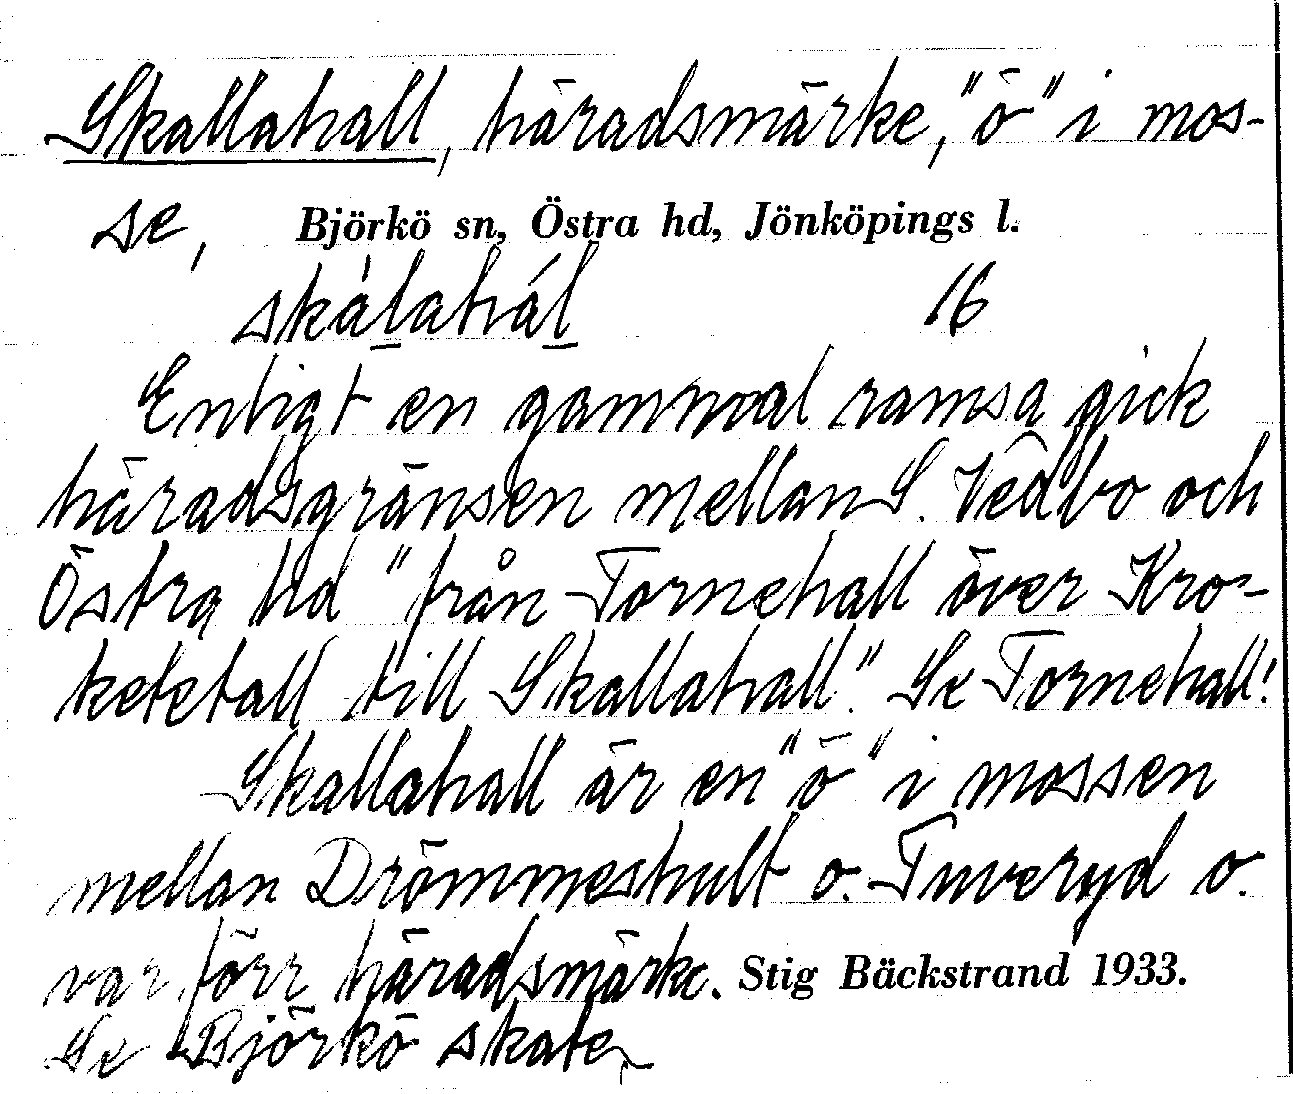 Skallahall, häradsmärke, "ö" i mos-
se, Björkö sn, Östra hd, Jönköpings l.
skàlahál 16
Enligt en gammal ramsa gick
häradsgränsen mellan S. Vedbo och
Östra hd "från Tornehall över Kro-
ketetall till Skallahall." Se Tornehall!
Skallahall är en "ö" i mossen
mellan Drömmeshult o. Tuveryd o.
var förr häradsmärke. Stig Bäckstrand 1933.
Se Björkö skate